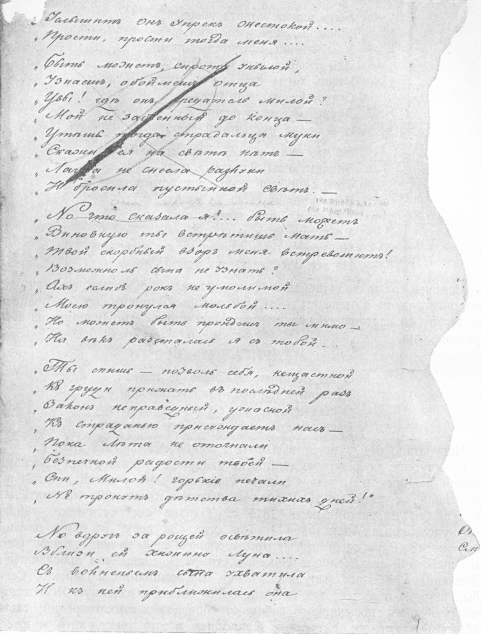 Услышитъ Онъ Упрекъ Жестокой....
„ Прости, прости тогда меня....
„ Быть можетъ, сирота унылой,
„ Узнаешь, обоймешь отца
„ Увы! гдѣ онъ предатель милой?
„ Мой не забвенный до конца —
„ Утѣшь тогда страдальца муки
„ Скажи на свѣтѣ нѣтъ —
„ Лаура не снесла разлуки
„ И бросила пустынной свѣтъ. —
„ Но что сказала я?... быть можетъ
„ Виновную ты встрѣтишь мать —
„ Твой скорбный взоръ меня встревожитъ!
„ Возможноль сына не узнать?
„ Ахъ еслибъ рокъ не умолимой
„ Моею тронулся мольбой....
„ Но можетъ быть пройдешь ты мимо —
„ На вѣкъ разсталась я съ тобой.
„ Ты спишь — позволь себя, нещастной
„ Къ груди прижать въ послѣдней разъ
„ Законъ неправедной, ужасной
„ Къ страданью присуждаетъ насъ —
„ Пока Лѣта не отогнали
„ Безпечной радости твоей —
„ Спи, Милой! горькіе печали
„ Не тронутъ дѣтства тихихъ дней!"
Но вдругъ за рощей освѣтила
Вблизи ей хижину Луна....
Съ волненьемъ сына ухватила
И къ ней приближилась она